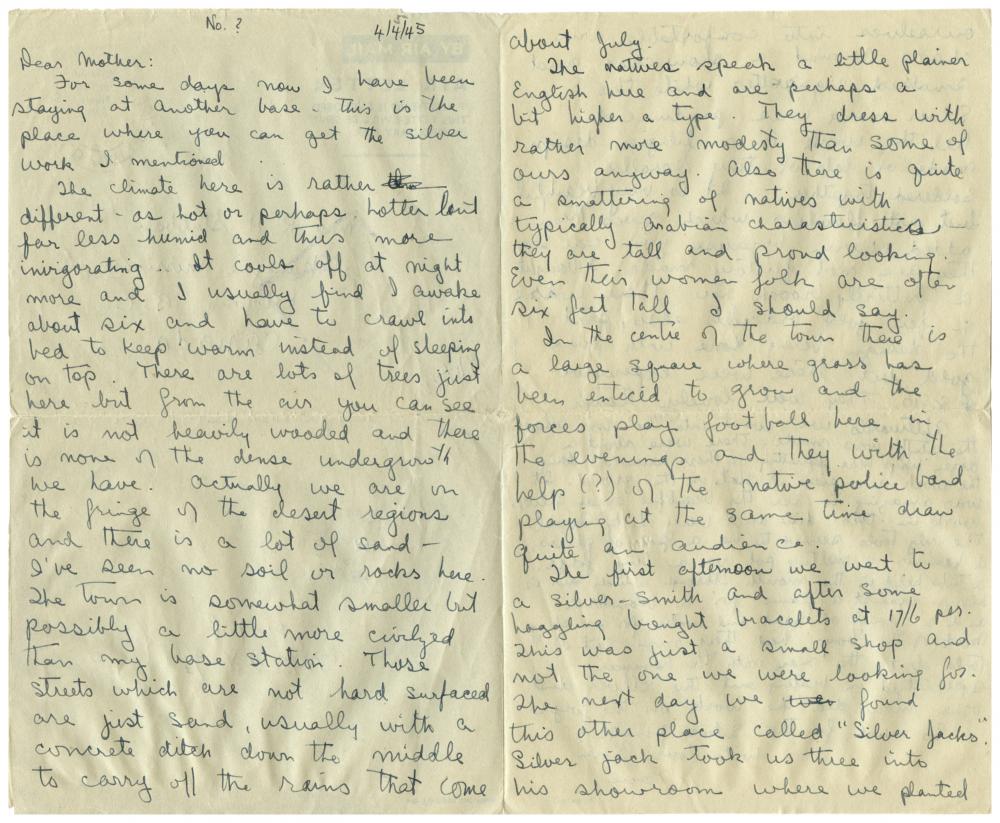 No. ?
4/4/45
5
Dear Mother:
For some days now I have been
staying at another base - this is the
place where you can get the silver
work I mentioned.
The climate here is rather the
different - as hot or perhaps hotter but
far less humid and thus more
invigorating. It cools off at night
more and I usually find I awake
about six and have to crawl into
bed to keep warm instead of sleeping
on top. There are lots of trees just
here but from the air you can see
it is not heavily wooded and there
is none of the dense undergrowth
we have. Actually we are on
the fringe of the desert regions
and there is a lot of sand -
I've seen no soil or rocks here.
The town is somewhat smaller but
possibly a little more civilyed
than my base station. Those
streets which are not hard surfaced
are just sand, usually with a
concrete ditch down the middle
to carry off the rains that come
about July.
The natives speak a little plainer
English here and are perhaps a
bit higher a type. They dress with
rather more modesty than some of
ours anyway. Also there is quite
a smattering of natives with
typically Arabian charasteristics -
they are tall and proud looking.
Even their women folk are often
six feet tall I should say.
In the centre of the town there is
a large square where grass has
been enticed to grow and the
forces play football here in
the evenings and they with the
help (?) of the native police band
playing at the same time draw
quite an audience.
The first afternoon we went to
a silver-smith and after some
haggling bought bracelets at 17/6 per.
This was just a small shop and
not the one we were looking for.
The next day we wen found
this other place called "Silver Jacks".
Silver jack took us three into
his showroom where we planted